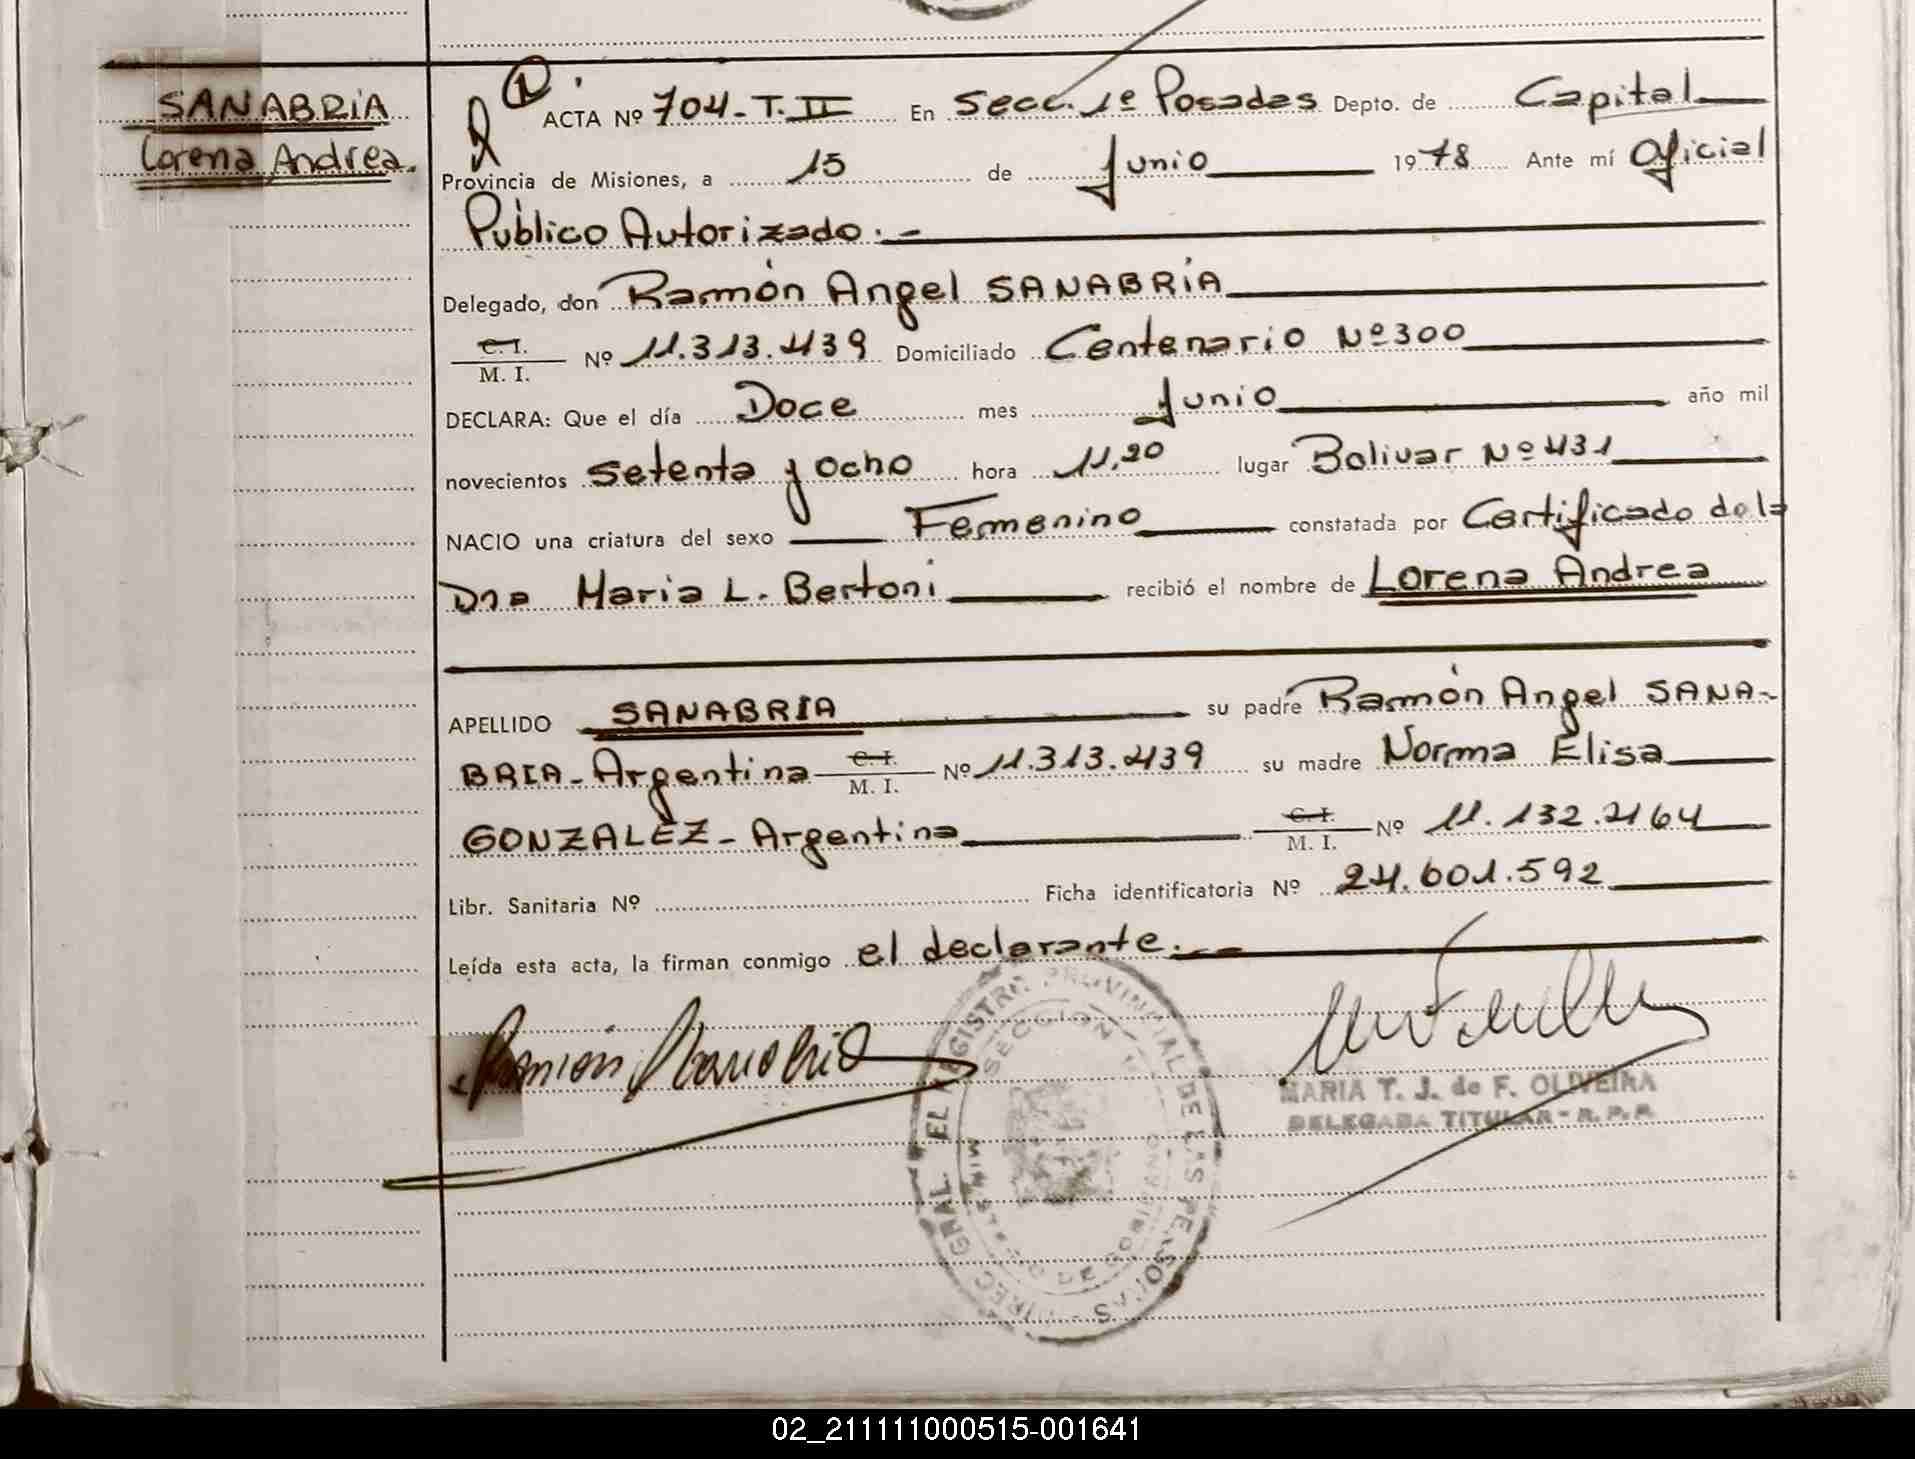 SANABRIA
Lorena Andrea.
ACTA Nº 704-T. II En Secc. 1º Posadas Depto. de Capital
Provincia de Misiones, a 15 de Junio 1978 Ante mí Oficial
Público Autorizado.-
Delegado, don Ramón Angel SANABRIA
C. I.
M. I. Nº 11.313.439 Domiciliado Centenario Nº 300
DECLARA: Que el día Doce mes Junio año mil
novecientos setenta y ocho hora 11,20 lugar Bolivar Nº 431
NACIO una criatura del sexo Femenino constatada por Certificado de la
Dra Maria L. Bertoni recibió el nombre de Lorena Andrea
APELLIDO SANABRIA su padre Ramón Angel SANA-
BRIA- Argentina C. I. M. I. Nº 11.313.439 su madre Norma Elisa
GONZALEZ- Argentina C. I. M. I. Nº 11.132.464
Libr. Sanitaria Nº Ficha identificatoria Nº 24.601.592
Leída esta acta, la firman conmigo el declarante.-
Ramón Sanabria
DIREC GRAL EL REGISTRO PROVINCIAL DE LAS PERSONAS
SECCION 1º
MINISTERIO DE GOBIERNO
MARIA T. J. de F. OLIVEIRA
DELEGADA TITULAR - R. P. P.
02_211111000515-001641